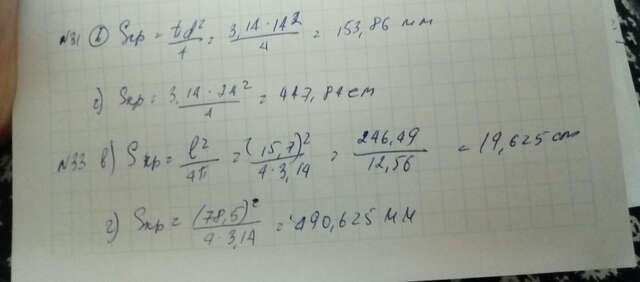 №31 в) Sкр = πd²/4 = 3,14 · 14²/4 = 153,86 мм
г) Sкр = 3,14 · 24²/4 = 447,84 см
№33 в) Sкр = l²/4π = (15,7)²/4 · 3,14 = 246,49/12,56 = 19,625 см
г) Sкр = (78,5)²/4 · 3,14 = 490,625 мм